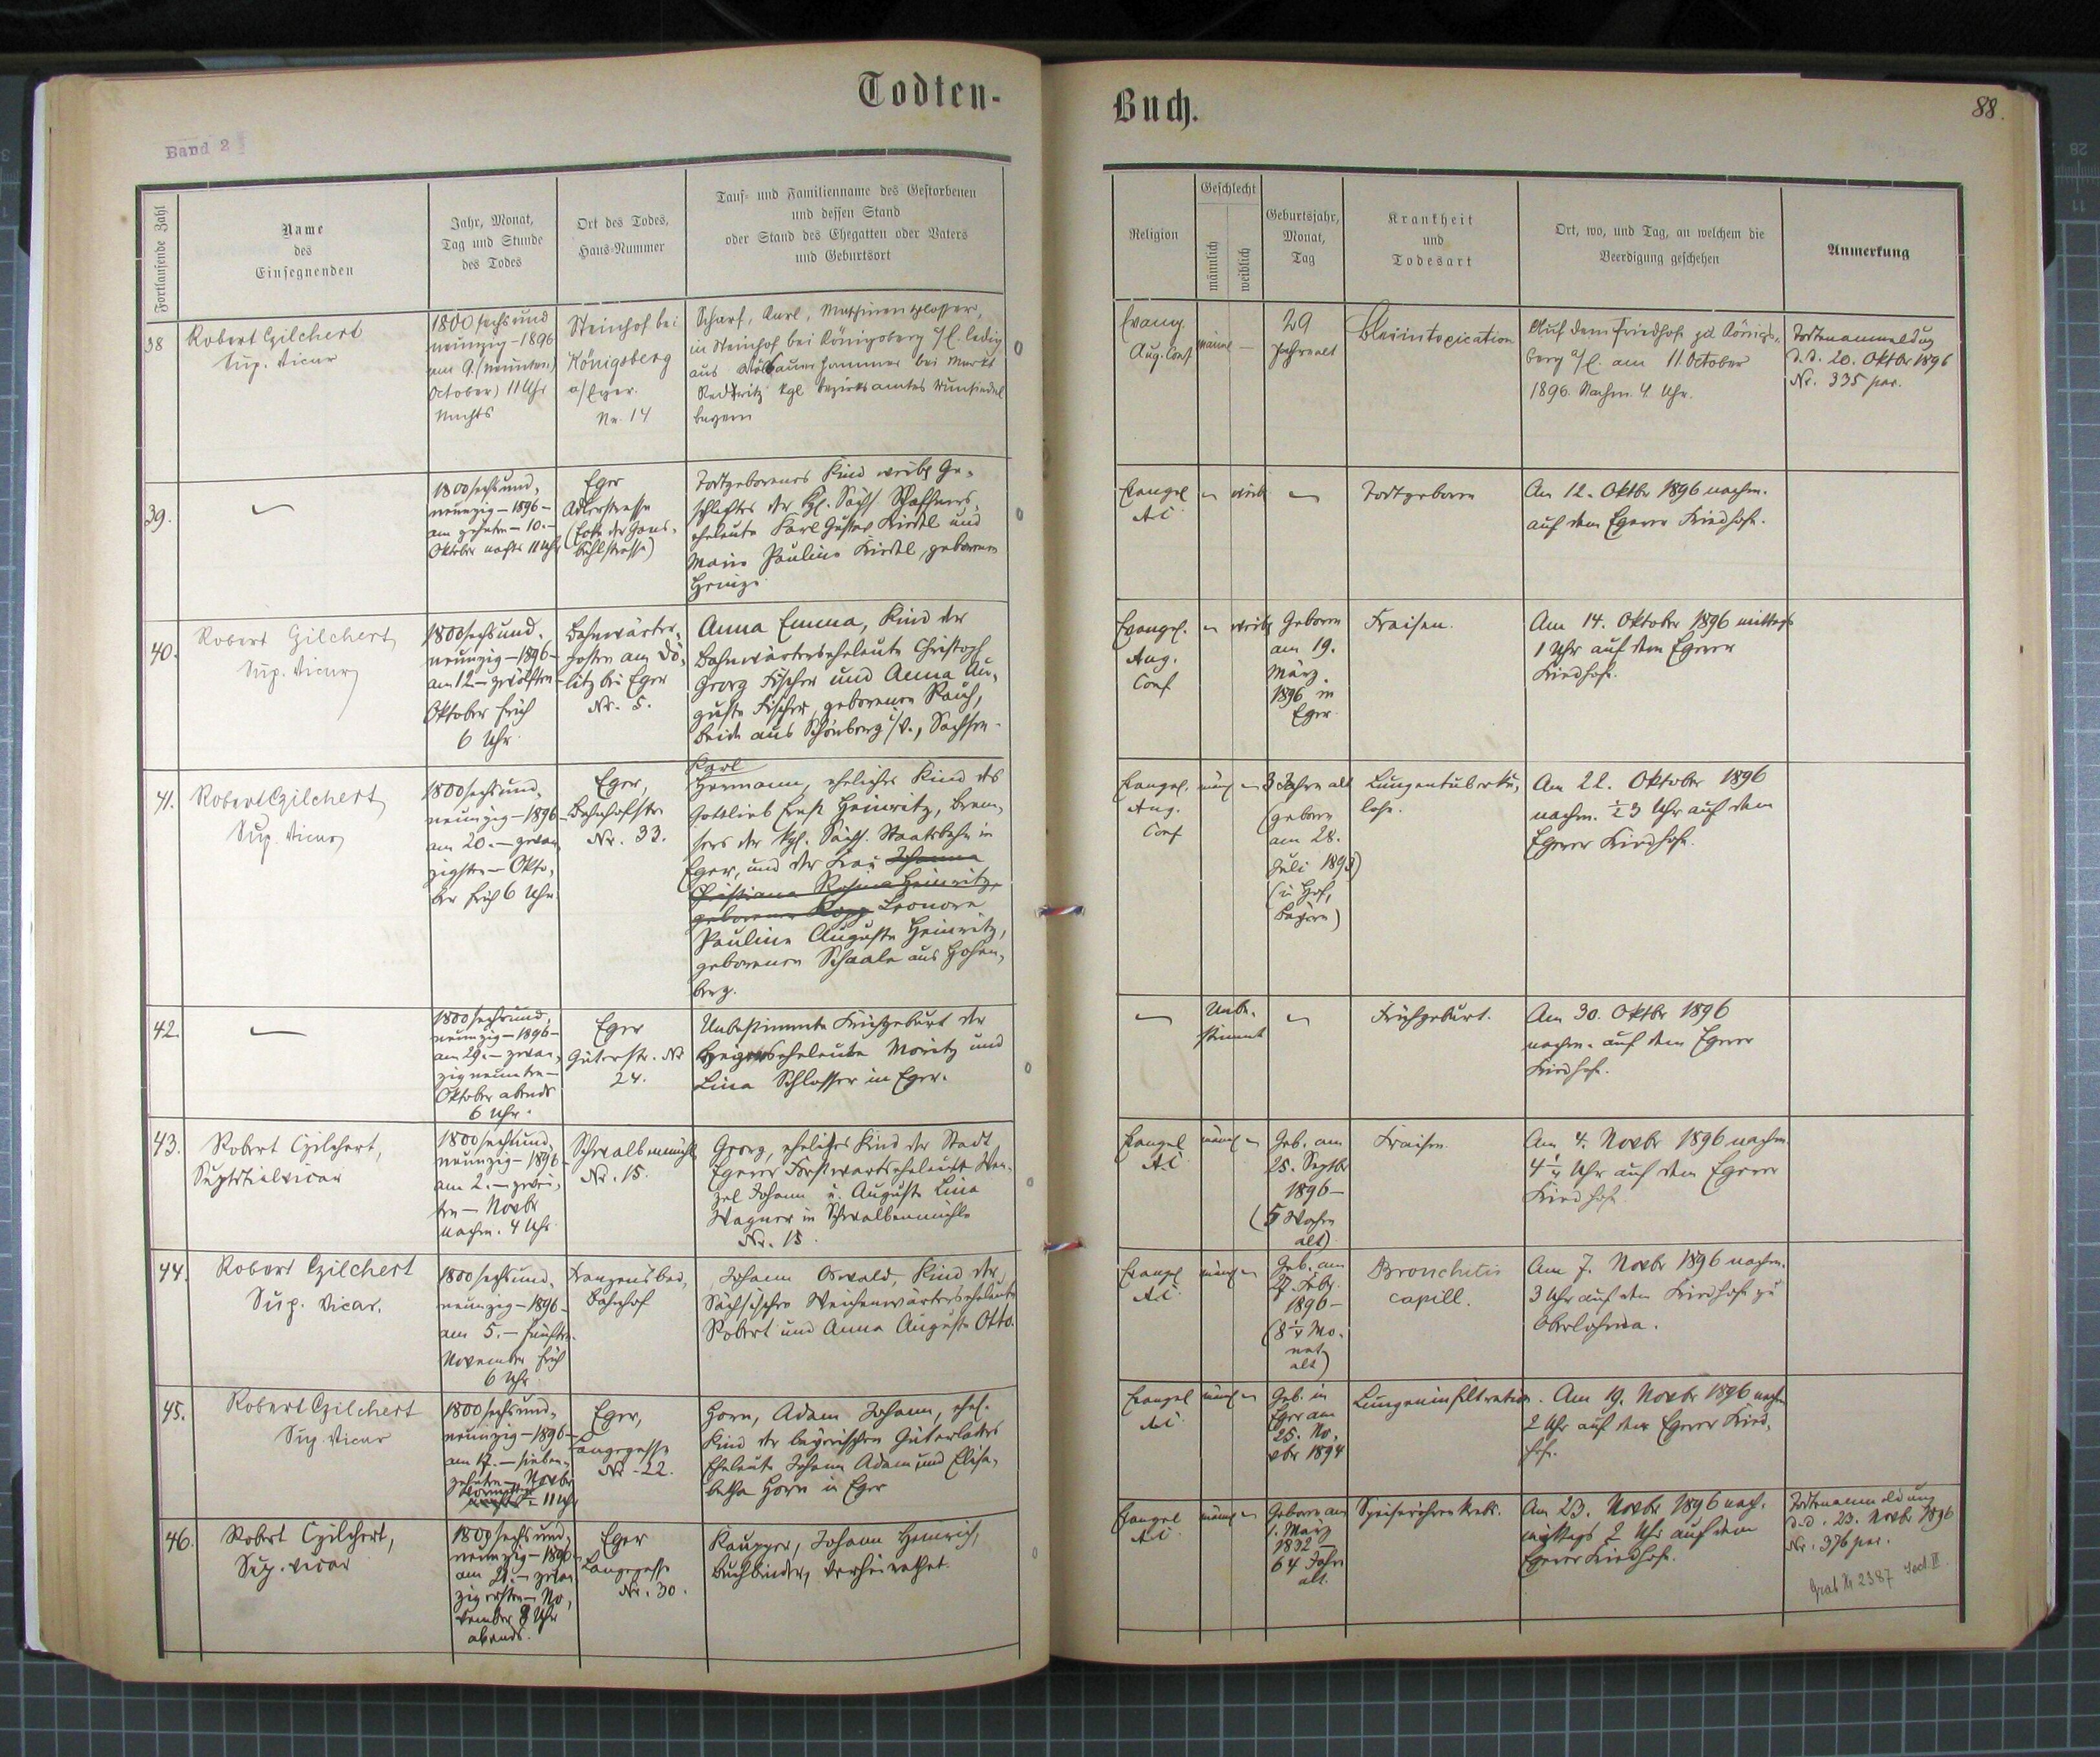 Todten-
Buch.
88.
Band 2
Fortlaufende Zahl
Name
des
Einsegnenden
Jahr, Monat,
Tag und Stunde
des Todes
Ort des Todes,
Haus-Nummer
Tauf- und Familienname des Gestorbenen
und dessen Stand
oder Stand des Ehegatten oder Vaters
und Geburtsort
Religion
Geschlecht
männlich
weiblich
Geburtsjahr,
Monat,
Tag
Krankheit
und
Todesart
Ort, wo, und Tag, an welchem die
Beerdigung geschehen
Anmerkung
38
Robert Gilchert
Sup. Vicar
1800 sechsund
neunzig - 1896
am 9. (neunten)
October) 11 Uhr
Nachts
Steinhof bei
Königsberg
a/Eger.
Nr. 14
Scharf, Karl, Maschinenschlosser,
in Steinhof bei Königsberg a/E. ledig
aus bei Markt
Redtwitz kgl Bezirksamtes Wunsiedel
Bayern
Evang.
Aug. Conf
männl —
29
Jahre alt
Bleiintoxication
Auf dem Friedhofe zu Königs-
berg a/E. am 11. October
1896. Nachm. 4. Uhr.
Todtenanmeldung
d. d. 20. Oktbr 1896
Nr. 335 par.
39.
1800 sechsund-
neunzig - 1896 -
am zehnten - 10. -
Oktober nachts 11 Uhr
Eger
Adlerstrasse
(Ecke der Hans-
Sühlstrasse)
Todtgeborenes Kind weibl Ge-
schlechtes der Kgl. Sächs. Schaffners-
eheleute Karl Gustav Riedel und
Marie Pauline Riedel, geborene
Heinze
Evangel
AC
weib
Todtgeboren
Am 12. Oktbr 1896 nachm.
auf dem Egerer Friedhofe.
40.
Robert Gilchert
Sup. Vicar
1800 sechsund-
neunzig - 1896 -
am 12 - zwölften -
Oktober früh
6 Uhr
Bahnwärter-
posten am Dö-
litz bei Eger
Nr. 5.
Anna Emma, Kind der
Bahnwärterseheleute Christoph
Georg Fischer und Anna Au-
guste Fischer, geborenen Rauh,
beide aus Schönberg i/V., Sachsen.
Evangel.
Aug.
Conf
weibl
Geboren
am 19.
März.
1896 in
Eger.
Fraisen.
Am 14. Oktober 1896 mittags
1 Uhr auf dem Egerer
Friedhofe.
41.
Robert Gilchert
Sup. Vicar
1800 sechsund-
neunzig - 1896
am 20. - zwan-
zigsten - Okto-
ber früh 6 Uhr
Eger,
Bahnhofstr
Nr. 33.
Karl
Hermann, eheliches Kind des
Gottlieb Ernst Heinritz, Brem-
sers der kgl. Sächs. Staatsbahn in
Eger, und der Frau Johanna
Christiana Rosina Heinritz,
geborenen Kopp Leonore
Pauline Auguste Heinritz,
geborenen Schaale aus Hohen-
berg.
Evangel.
Aug.
Conf
männl
3 Jahre alt
(geboren
am 28.
Juli 1893)
(in Hof,
Bayern)
Lungentuberku-
lose.
Am 22. Oktober 1896
nachm. ½ 3 Uhr auf dem
Egerer Friedhofe.
42.
1800 sechsund-
neunzig - 1896 -
am 29. - zwan-
zigneunten -
Oktober abends
6 Uhr.
Eger
Güterstr. Nr
24.
Unbestimmte Frühgeburt der
Heizerseheleute Moritz und
Lina Schlosser in Eger.
Unbe-
stimmt
Frühgeburt.
Am 30. Oktbr 1896
nachm. auf dem Egerer
Friedhofe.
43.
Robert Gilchert,
Suptdtialvicar
1800 sechsund-
neunzig - 1896
am 2. - zwei-
ten - Novbr
nachm. 4 Uhr
Schwalbenmühl
Nr. 15.
Georg, eheliches Kind der Stadt
Egerer Forstwartseheleute Wen-
zel Johann u. Auguste Lina
Wagner in Schwalbenmühle
Nr. 15.
Evangel
AC
männl
Geb. am
25. Septbr
1896 -
(5 Wochen
alt)
Fraisen.
Am 4. Novbr 1896 nachm.
4¼ Uhr auf dem Egerer
Friedhofe.
44.
Robert Gilchert
Sup. Vicar.
1800 sechsund-
neunzig - 1896 -
am 5. - fünften -
November früh
6 Uhr
Franzensbad,
Bahnhof
Johann Oswald, Kind der
Sächsischen Weichenwärterseheleute
Robert und Anna Auguste Otto.
Evangel
AC
männl
Geb. am
27. Febr.
1896 -
(8¼ Mo-
nat
alt)
Bronchitis
capill.
Am 7. Novbr 1896 nachm.
3 Uhr auf dem Friedhofe zu
Oberlohma.
45.
Robert Gilchert
Sup. Vicar
1800 sechsund-
neunzig - 1896 -
am 17. - sieben-
zehnten - Novbr
Vormittag
nachts - 11 Uhr
Eger,
Langegasse
Nr - 22.
Horn, Adam Johann, ehel.
Kind der bayrischen Güterladers
Eheleute Johann Adam und Elisa-
betha Horn in Eger
Evangel
AC
männl
Geb. in
Eger am
25. No-
vbr 1894
Lungeninfiltration.
Am 19. Novbr 1896 nachm
2 Uhr auf dem Egerer Fried-
hofe.
46.
Robert Gilchert,
Sup. Vicar
1800 sechsund-
neunzig - 1896 -
am 21. - zwan-
zigersten - No-
vember 8 Uhr
abends.
Eger
Langegasse
Nr. 30.
Kaupper, Johann Heinrich,
Buchbinder, verheirathet.
Evangel
AC
männl
Geboren am
1. März
1832 -
64 Jahre
alt.
Speiseröhrenkrebs.
Am 23. Novbr 1896 nach-
mittags 2 Uhr auf dem
Egerer Friedhofe.
Todtenanmeldung
d. d. 23. Novbr 1896
Nr. 376 par.
Grab Nr 2387 Sect. II.